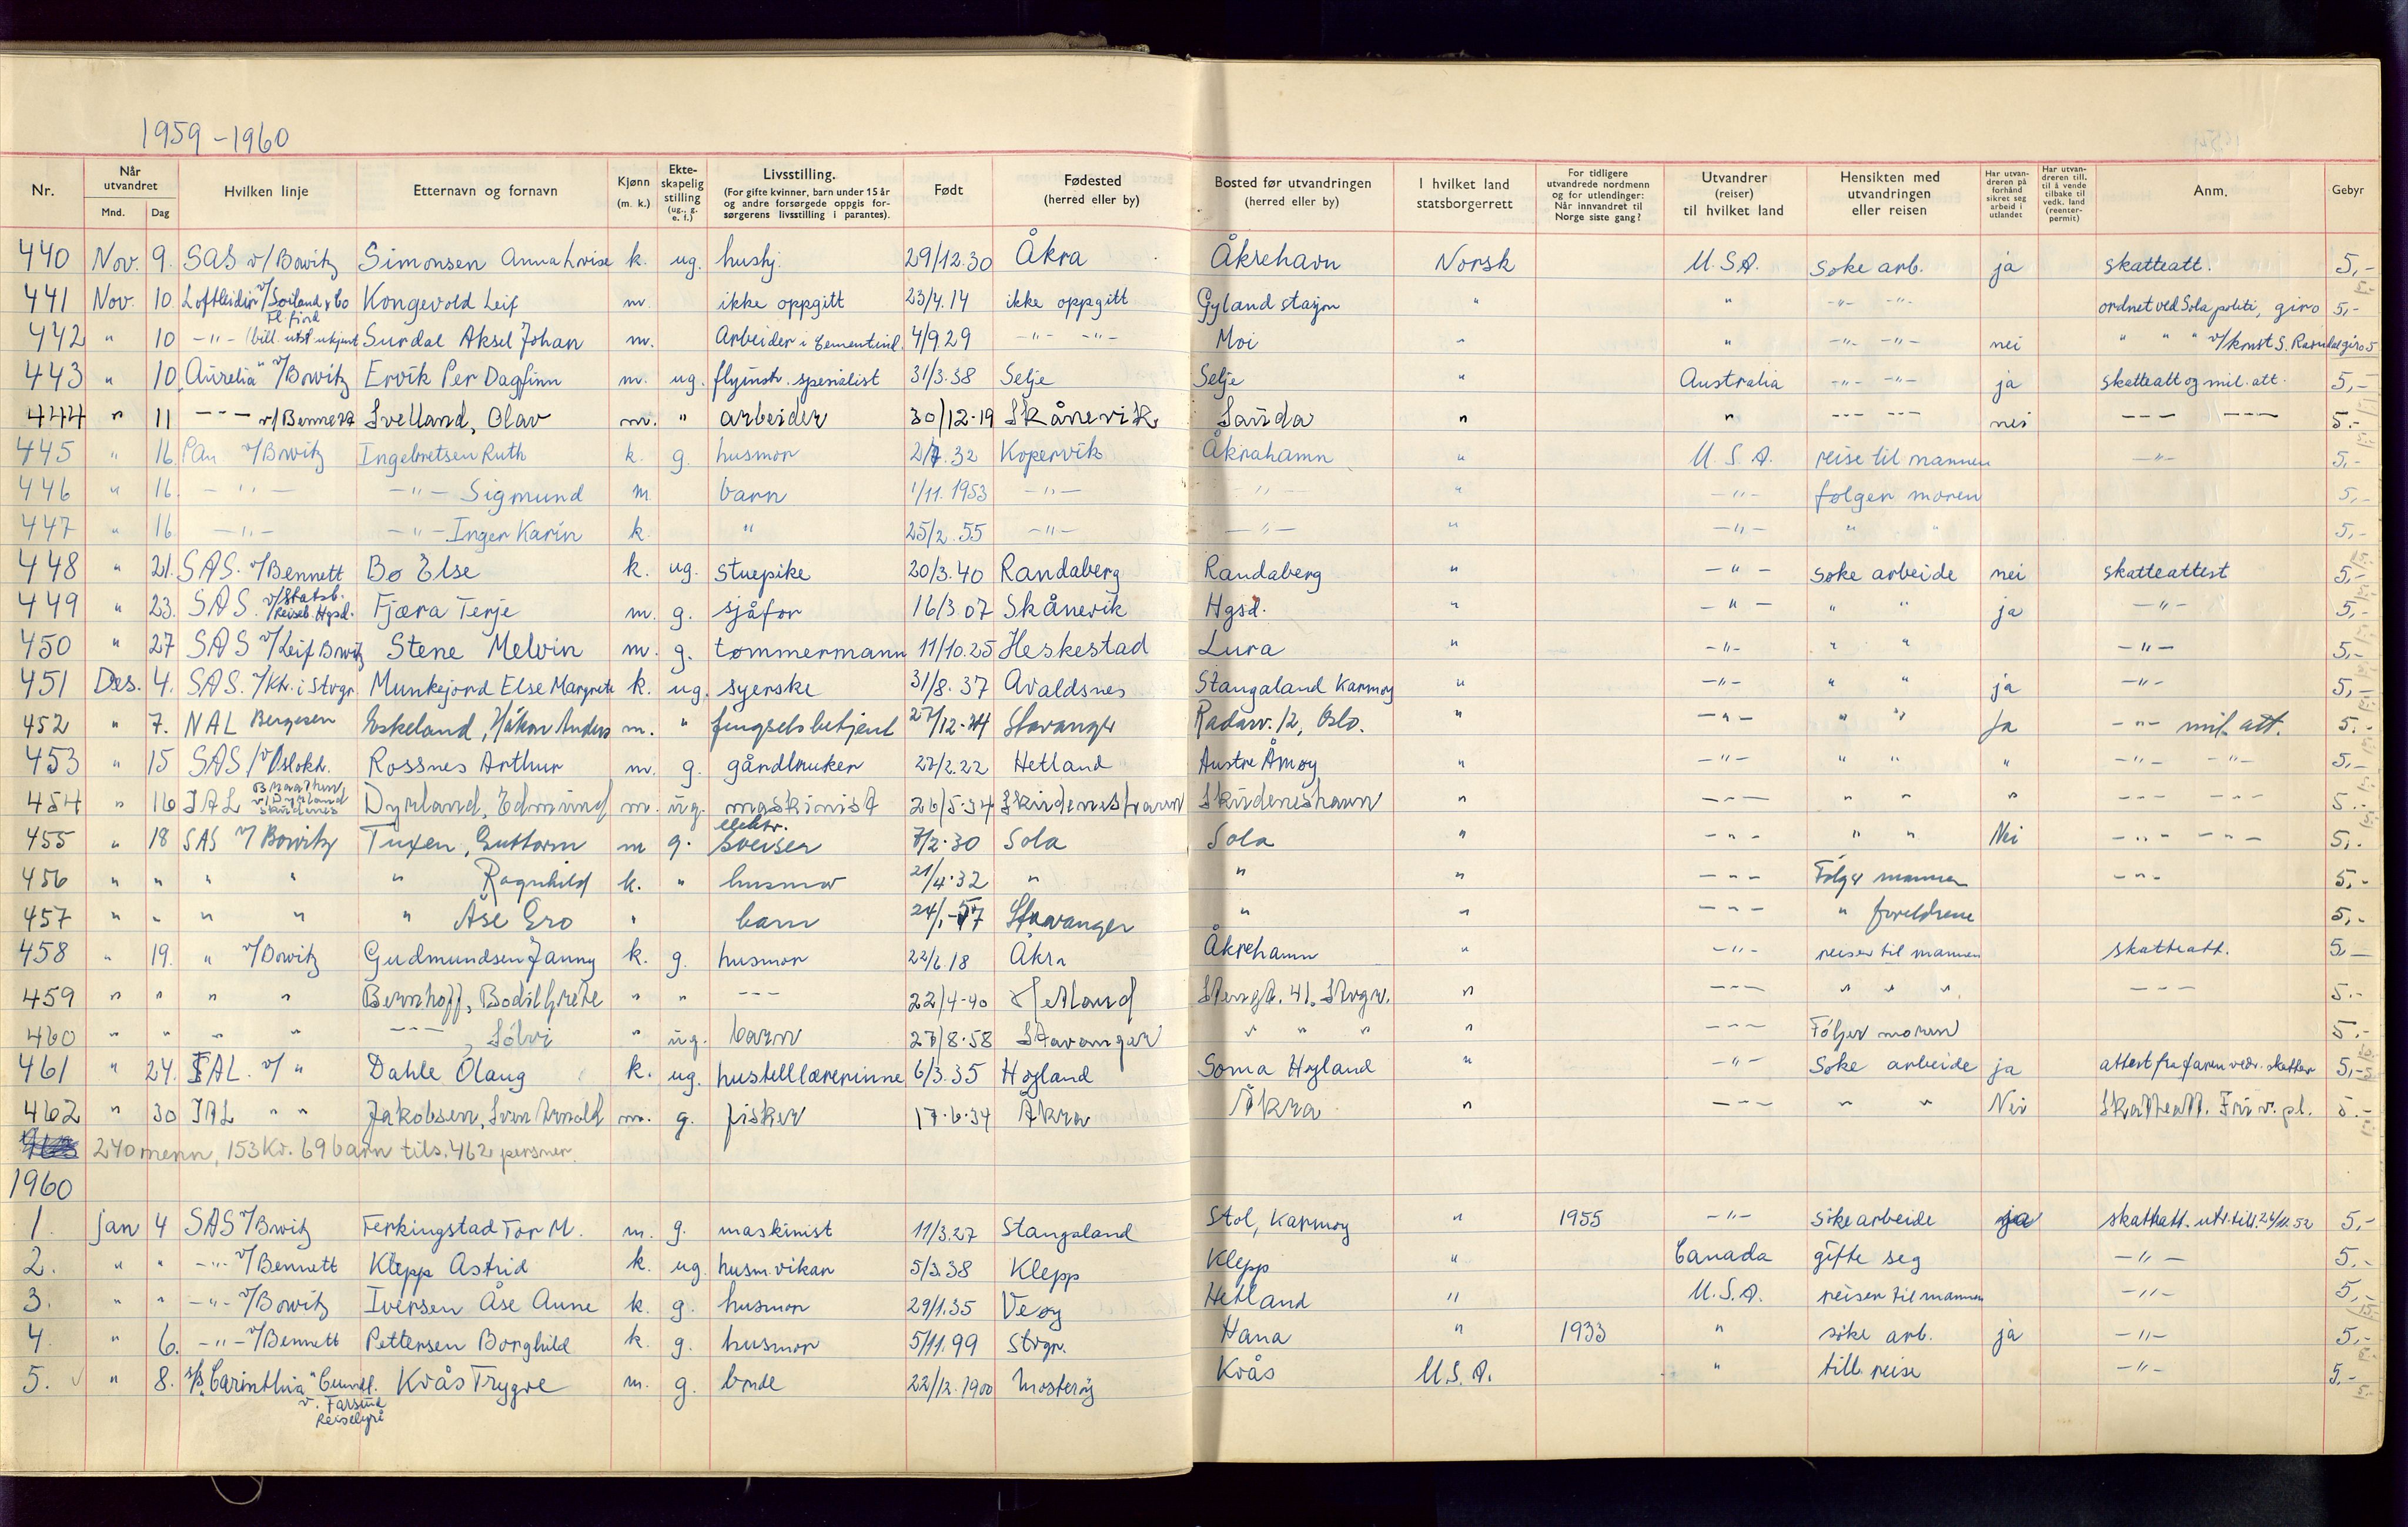 1959-1960
Nr. Når utvandret Mnd. Dag Hvilken linje Etternavn og fornavn Kjønn (m. k.) Ekteskapelig stilling (ug., g. e. f.) Livsstilling. (For gifte kvinner, barn under 15 år og andre forsørgede oppgis forsørgerens livsstilling i parantes). Født Fødested (herred eller by) Bosted før utvandringen (herred eller by) I hvilket land statsborgerrett For tidligere utvandrede nordmenn og for utlendinger: Når innvandret til Norge siste gang? Utvandrer (reiser) til hvilket land Hensikten med utvandringen eller reisen Har utvandreren på forhånd sikret seg arbeid i utlandet Har utvandreren till. til å vende tilbake til vedk. land (reenterpermit) Anm. Gebyr
440 Nov. 9. SAS v/Bowitz Simonsen Anna Lovise k. ug. hushj. 29/12.30 Åkra Åkrehavn Norsk U.S.A. Søke arb. ja skatteatt. 5,-
441 Nov. 10. Loftleidir v/Soiland & Co Fl.fjord Kongevold Leif m. ikke oppgitt 23/4.14 ikke oppgitt Gyland stasjon " " -"- -"- ordnet ved Sola politi, giro 5,-
442 " 10 -"- (bill. utst ukjent Surdal Aksel Johan m. Arbeider i sementind. 4/9.29 -"- -"- Moi " " -"- -"- nei " " " v/konst S. giro 5
443 " 10. "Aurelia" v/Bowitz Ervik Per Dagfinn m. ug. flyinstr. spesialist 31/3.38 Selje Selje " Australia -"- -"- ja skatteatt og mil. att. 5,-
444 " 11 --- v/Bennett Svelland, Olav m. " arbeider 30/12-19 Skånevik Sauda " " --- --- nei --- --- 5.-
445 " 16. PAn v/Bowitz Ingebretsen Ruth k. g. husmor 2/7.32 Kopervik Åkrahamn " U.S.A. reise til mannen -"- 5,-
446 " 16. -"- -"- Sigmund m. barn 1/11.1953 -"- -"- " -"- følger moren 5,-
447 " 16 -"- -"- Inger Karin k. " 25/2.55 -"- -"- " -"- " " 5,-
448 " 21. SAS. v/Bennett Bø Else k. ug. stuepike 20/3.40 Randaberg Randaberg " -"- søke arbeide nei skatteattest 5,-
449 " 23. SAS. v/Statsb. Reiseb. Hgsd. Fjæra Terje m. g. sjåfør 16/3.07 Skånevik Hgsd. " -"- " " ja -"- 5,-
450 " 27 SAS v/Leif Bowitz Stene Melvin m. g. tømmermann 11/10.25 Heskestad Lura " -"- " " -"- 5,-
451 Des. 4. SAS. v/Kt. i Stvgr. Munkejord Else Margrete k. ug. syerske 31/8.37 Avaldsnes Stangaland Karmøy " -"- " " ja -"- 5,-
452 " 7. NAL Bergesen Eskeland, Håkon Anders m. " fengselsbetjent 27/12-44 Stavanger Radarv. 12, Oslo. " -"- " " ja -"- mil. att. 5.-
453 " 15 SAS v/Oslokt. Rossnes Arthur m. g. gårdbruker 27/2.22 Hetland Austre Åmøy " -"- " " " -"- -"- 5,-
454 " 16 IAL Braathen v/Dyrland Skudenes Dyrland, Edmund m. ug. maskinist 26/5-34 Skudeneshavn Skudeneshavn " --- " " " --- --- 5.-
455 " 18 SAS v/Bowitz Tuxen, Guttorm m g. elektr. sveiser 7/2.30 Sola Sola " -"- " " Nei -"- -"- 5,-
456 " " " " " Ragnhild k. " husmor 21/4.32 " " " -"- Følger mannen -"- 5,-
457 " " " " " Åse Gro " barn 24/1-57 Stavanger " " -"- " foreldrene 5,-
458 " 19. " v/Bowitz Gudmundsen Janny k. g. husmor 22/6.18 Åkra Åkrehamn " -"- reiser til mannen skatteatt. 5-
459 " " " " Bernhoff, Bodil Grete " " --- 22/4-40 Hetland Stengt. 41. Stvgr. " --- " " " --- 5.-
460 " " " " --- , Sølvi " ug. barn 27/8-58 Stavanger " " " " --- Følger moren 5.-
461 " 24. IAL. v/ " Dahle Olaug k. ug. hustellærerinne 6/3.35 Høyland Soma Høyland " -"- Søke arbeide ja attest fra faren vedr. skatter 5,-
462 " 30 IAL " " Jakobsen, Sven Arnold m. g. fisker 17-6-34 Åkra Åkra " --- " " Nei Skatteatt. Fri v. pl. 5.-
240 menn, 153 Kv. 69 barn tils. 462 personer.
1960
1. Jan 4 SAS v/Bowitz Ferkingstad Tor M. m. g. maskinist 11/3.27 Stangaland Stol, Karmøy " 1955 -"- søke arbeide ja skatteatt. utr. till. 24/11.52 5,-
2. " " -"- v/Bennett Klepp Astrid k. ug. husm.vikar 5/3.38 Klepp Klepp " Canada gifte seg -"- 5,-
3. " " -"- v/Bowitz Iversen Åse Aune k. g. husmor 29/1.35 Veøy Hetland " U.S.A. reiser til mannen -"- 5,-
4. " 6. -"- v/Bennett Pettersen Borghild k. g. husmor 5/11.99 Stvgr. Hana " 1933 " søke arb. ja -"- 5,-
5. " 8. s/s "Carinthia" Cunard. v. Farsund Reisebyrå Kvås Trygve m. g. bonde 22/12.1900 Mosterøy Kvås U.S.A. " till. reise -"- 5,-